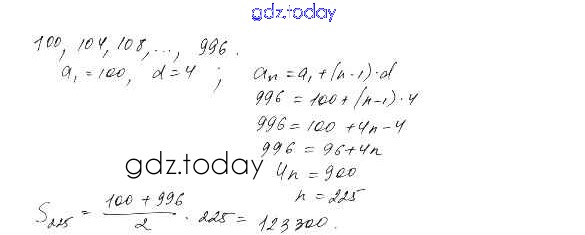 gdz.today
100, 104, 108, ..., 996.
a₁ = 100, d = 4 ; aₙ = a₁ + (n-1)·d
996 = 100 + (n-1)·4
996 = 100 + 4n - 4
996 = 96 + 4n
gdz.today
4n = 900
n = 225
S₂₂₅ = (100 + 996)/2 · 225 = 123300.